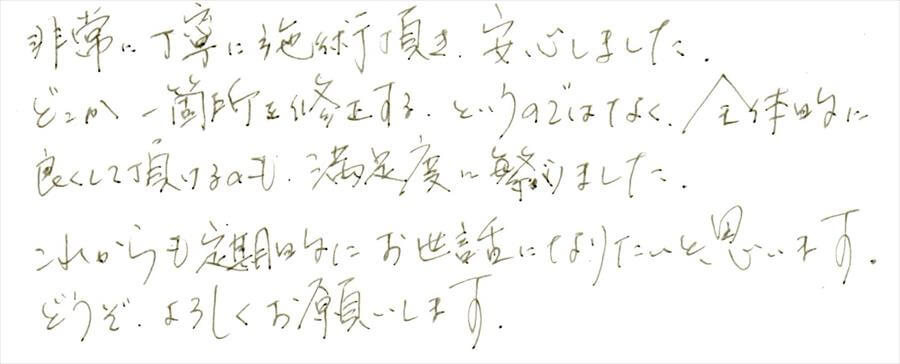 非常に丁寧に施術頂き、安心しました。
どこか一箇所を修正する、というのではなく、全体的に
良くして頂けるのも、満足度に繋がりました。
これからも定期的にお世話になりたいと、思います。
どうぞ、よろしくお願いします。